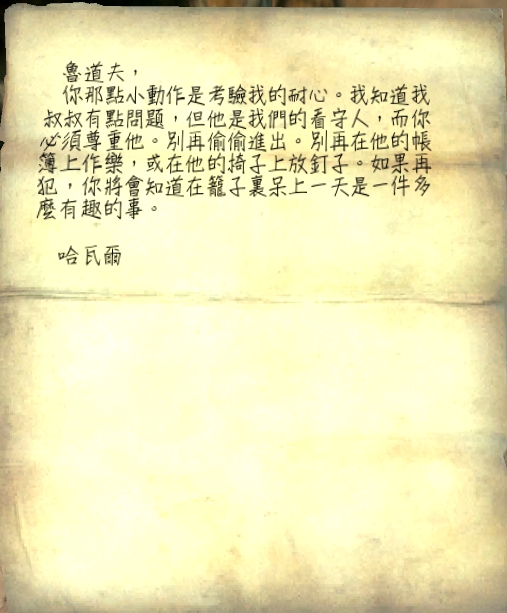 魯道夫，
你那點小動作是考驗我的耐心。我知道我
叔叔有點問題，但他是我們的看守人，而你
必須尊重他。別再偷偷進出。別再在他的帳
簿上作樂，或在他的椅子上放釘子。如果再
犯，你將會知道在籠子裏呆上一天是一件多
麼有趣的事。
哈瓦爾